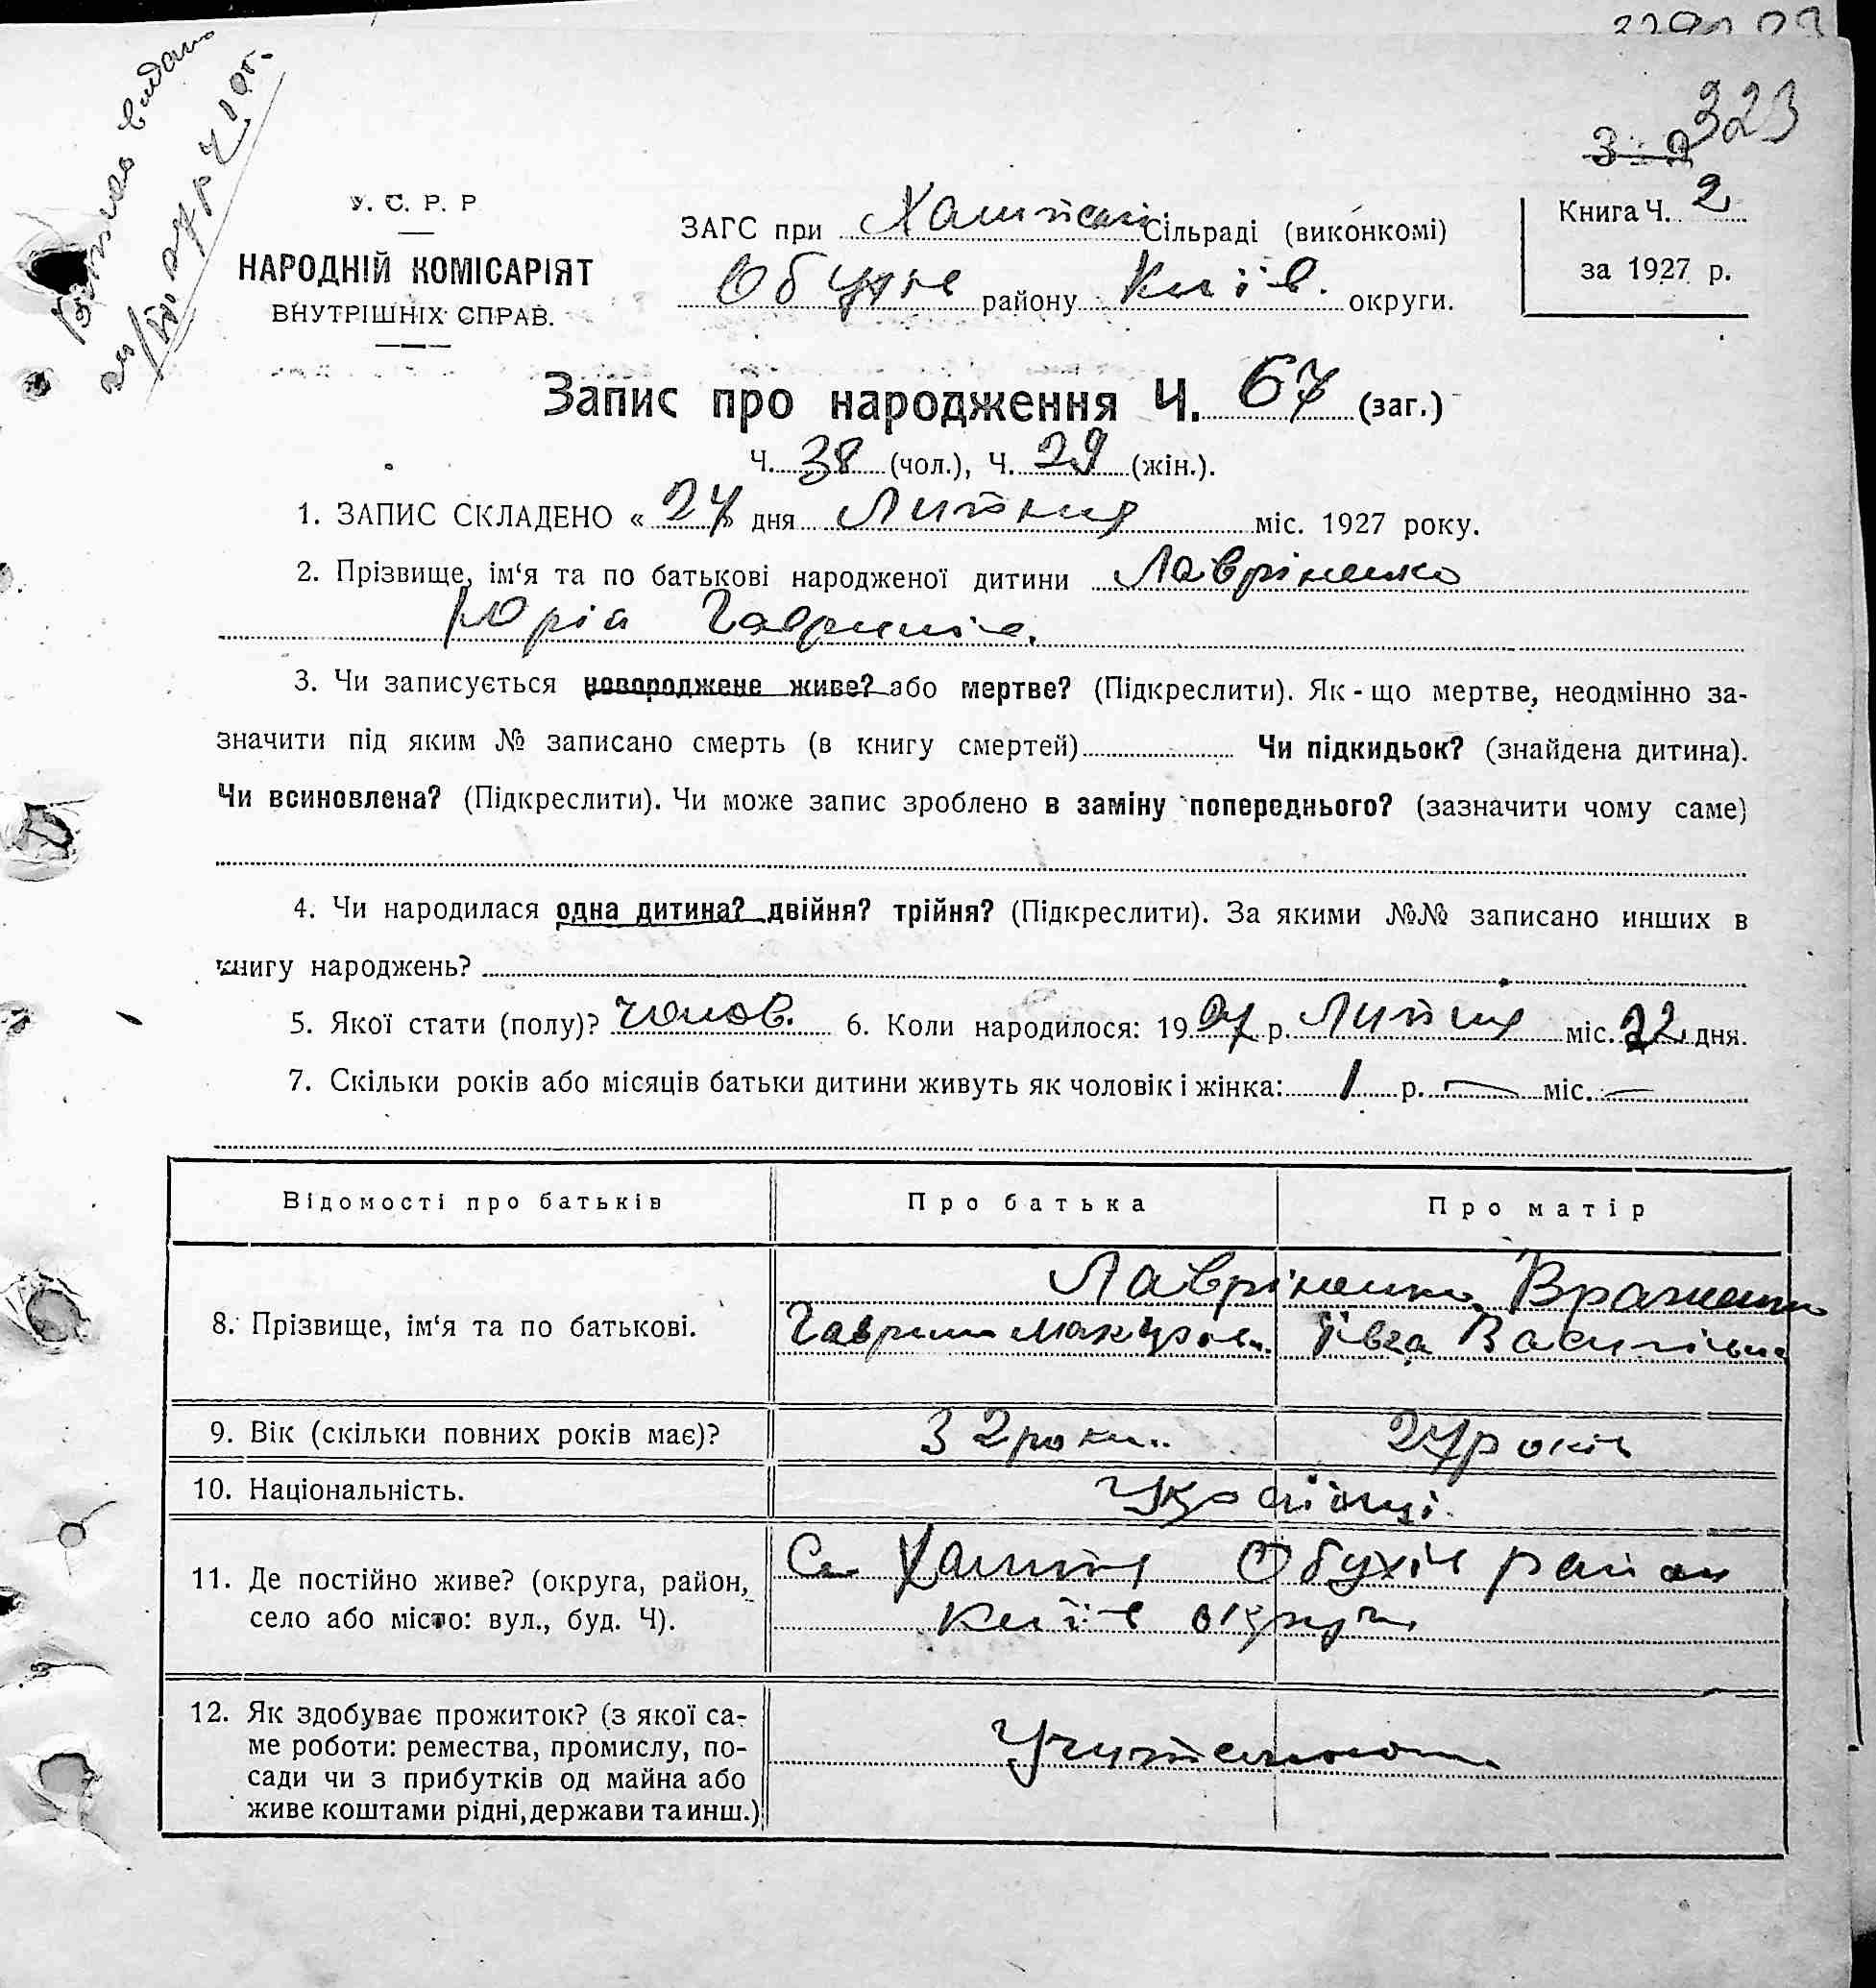 323
У. С. Р. Р
НАРОДНІЙ КОМІСАРІЯТ
ВНУТРІШНІХ СПРАВ.
ЗАГС при Сільраді (виконкомі)
району Київ. округи.
Книга Ч. 2
за 1927 р.
Запис про народження Ч. 67 (заг.)
Ч. 38 (чол.), Ч. 29 (жін.).
1. ЗАПИС СКЛАДЕНО « 27 » дня Липня міс. 1927 року.
2. Прізвище, ім‘я та по батькові народженої дитини Лавріненко
Юрій
3. Чи записується новороджене живе? або мертве? (Підкреслити). Як - що мертве, неодмінно за-
значити під яким № записано смерть (в книгу смертей) Чи підкидьок? (знайдена дитина).
Чи всиновлена? (Підкреслити). Чи може запис зроблено в заміну попереднього? (зазначити чому саме)
4. Чи народилася одна дитина? двійня? трійня? (Підкреслити). За якими №№ записано инших в
книгу народжень?
5. Якої стати (полу)? чолов. 6. Коли народилося: 1927 р. Липня міс. 22 дня.
7. Скільки років або місяців батьки дитини живуть як чоловік і жінка: 1 р. — міс. —
Відомості про батьків Про батька Про матір
8. Прізвище, ім‘я та по батькові. Лавріненко
Василівна
9. Вік (скільки повних років має)? 32 роки. 27 років
10. Національність. Українці.
11. Де постійно живе? (округа, район, Обухів район
село або місто: вул., буд. Ч). Київ округи
12. Як здобуває прожиток? (з якої са-
ме роботи: ремества, промислу, по-
сади чи з прибутків од майна або
живе коштами рідні, держави та инш.)